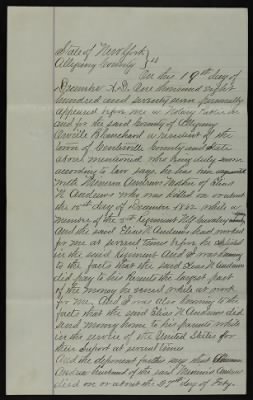 State of New York
Allegany County } ss
On this 19th day of
December A.D. One thousand eight
hundred and seventy seven personally
appeared before me a Notary Public in
and for the said County of Allegany
Orville Blanchard a resident of the
town of Centerville County and State
above mentioned who being duly sworn
according to law says he has been acquainted
with Andrews Mother of Elias
N Andrews who was killed on or about
the 13th day of December 1862 while a
member of the Regiment
And the said Elias N Andrews had worked
for me at several times before he enlisted
in the said Regiment And I was knowing
to the facts that the said Elias N Andrews
did pay to his Parents the largest part
of the money he earned while at work
for me, And I was also knowing to the
facts that the said Elias N Andrews did
send money home to his parents while
in the service of the United States for
their support at several times
And the deponent further says that
Andrews husband of the said Andrews
died on or about the 27th day of Feby.